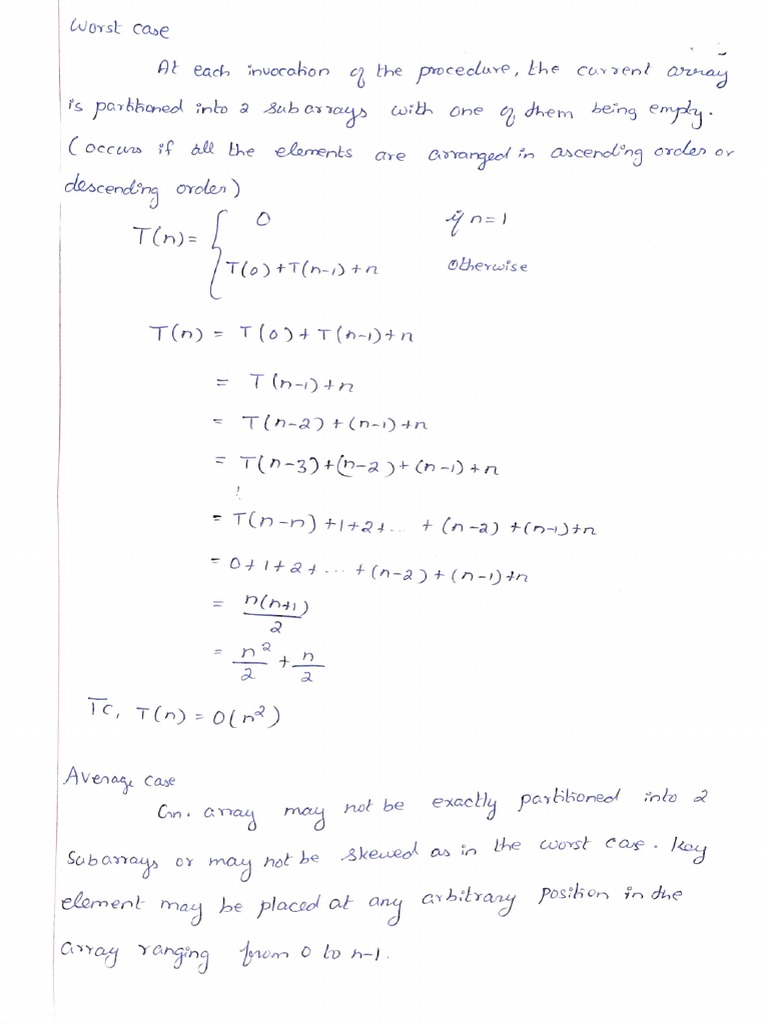 Worst case
At each invocation of the procedure, the current array
is partitioned into 2 subarrays with one of them being empty.
(occurs if all the elements are arranged in ascending order or
descending order)
T(n) = { 0 if n=1
T(0)+T(n-1)+n Otherwise
T(n) = T(0)+T(n-1)+n
= T(n-1)+n
= T(n-2)+(n-1)+n
= T(n-3)+(n-2)+(n-1)+n
⋮
= T(n-n)+1+2+... +(n-2)+(n-1)+n
= 0+1+2+...+(n-2)+(n-1)+n
= n(n+1)/2
= n²/2 + n/2
TC, T(n) = O(n²)
Average case
array may not be exactly partitioned into 2
Subarrays or may not be skewed as in the worst case. Key
element may be placed at any arbitrary position in the
array ranging from 0 to n-1.